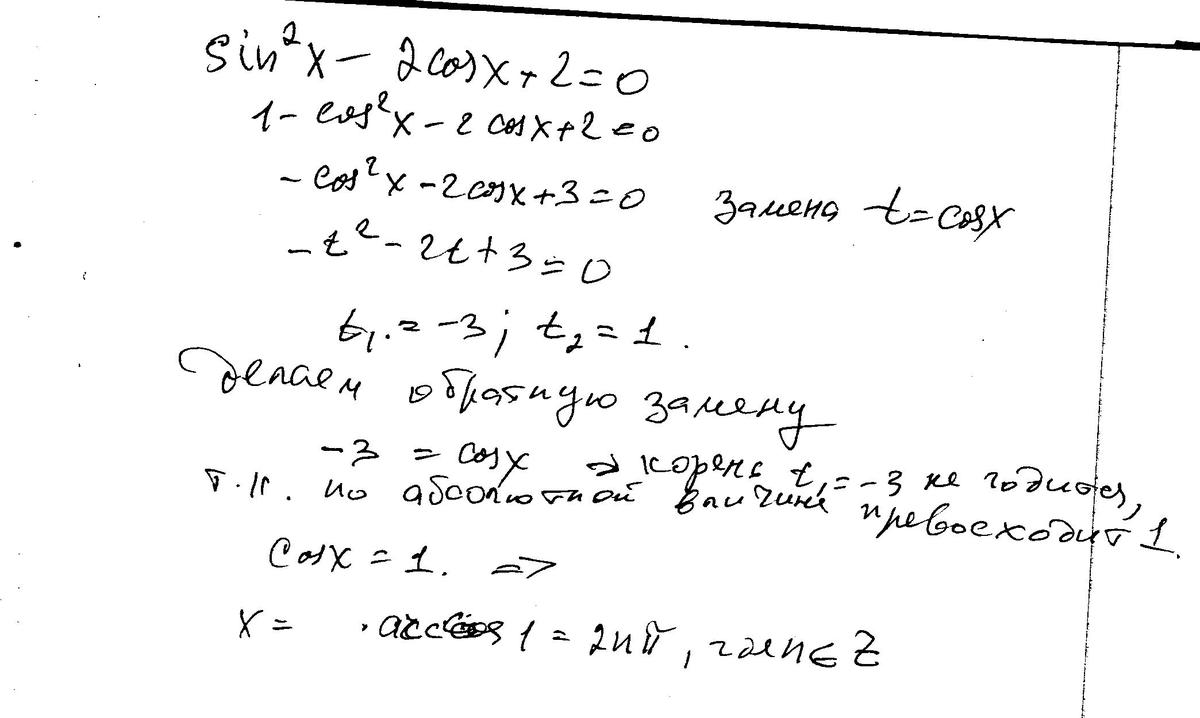 sin²x - 2cosx + 2 = 0
1 - cos²x - 2cosx + 2 = 0
-cos²x - 2cosx + 3 = 0 замена t = cosx
-t² - 2t + 3 = 0
t₁ = -3; t₂ = 1.
Делаем обратную замену
-3 = cosx ⇒ корень t₁ = -3 не годится,
т.к. по абсолютной величине превосходит 1.
cosx = 1. ⇒
x = arccos 1 = 2nπ, где n ∈ Z